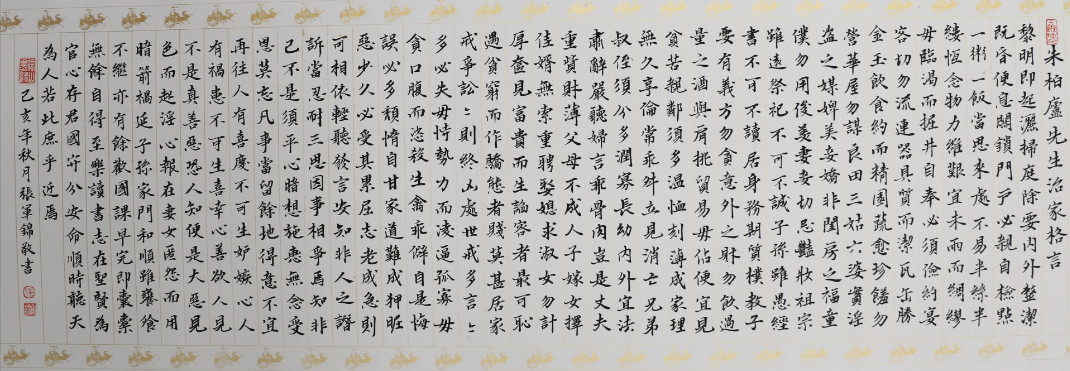 朱柏廬先生治家格言
黎明即起灑掃庭除要內外整潔
既昏便息關鎖門戶必親自檢點
一粥一飯當思來處不易半絲半
縷恆念物力維艱宜未雨而綢繆
毋臨渴而掘井自奉必須儉約宴
客切勿流連器具質而潔瓦缶勝
金玉飲食約而精園蔬愈珍饈勿
營華屋勿謀良田三姑六婆實淫
盜之媒婢美妾嬌非閨房之福童
僕勿用俊美妻妾切忌豔妝祖宗
雖遠祭祀不可不誠子孫雖愚經
書不可不讀居身務期質樸教子
要有義方勿貪意外之財勿飲過
量之酒與肩挑貿易毋佔便宜見
貧苦親鄰須多溫恤刻薄成家理
無久享倫常乖舛立見消亡兄弟
叔侄須分多潤寡長幼內外宜法
肅辭嚴聽婦言乖骨肉豈是丈夫
重貲財薄父母不成人子嫁女擇
佳婿無索重聘娶媳求淑女勿計
厚奩見富貴而生諂容者最可恥
遇貧窮而作驕態者賤莫甚居家
戒爭訟〻則終凶處世戒多言〻
多必失毋恃勢力而凌逼孤寡毋
貪口腹而恣殺生禽乖僻自是悔
誤必多頹惰自甘家道難成狎昵
惡少久必受其累屈志老成急則
可相依輕聽發言安知非人之譖
訴當忍耐三思因事相爭焉知非
己不是須平心暗想施惠無念受
恩莫忘凡事當留餘地得意不宜
再往人有喜慶不可生妒嫉心人
有禍患不可生喜幸心善欲人見
不是真善惡恐人知便是大惡見
色而起淫心報在妻女匿怨而用
暗箭禍延子孫家門和順雖饔飧
不繼亦有餘歡國課早完即囊橐
無餘自得至樂讀書志在聖賢為
官心存君國守分安命順時聽天
為人若此庶乎近焉
己亥年秋月張軍錦敬書